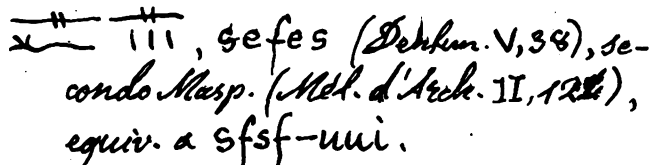 𓊃𓆑𓊃𓏥, sefes (Denkm. V, 38), se-
condo Masp. (Mél. d'Arch. II,
equiv. a sfsf-uui.